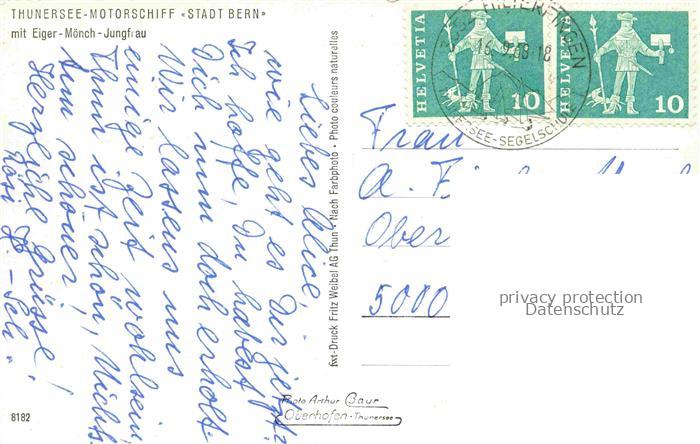 THUNERSEE-MOTORSCHIFF «STADT BERN»
mit Eiger-Mönch-Jungfrau
Liebes Alice,
wie geht es Dir jetzt?
Ich hoffe, Du habest
Dich nun doch erholt.
Wir lassens uns
einige Zeit wohlsein.
Thun ist schön, Nichts
um schöner!
Herzliche Grüsse!
Rösi
8182
fwt-Druck Fritz Weibel AG Thun • Nach Farbphoto • Photo couleurs naturelles
Photo Arthur Baur
Oberhofen-Thunersee
HELVETIA
10
HELVETIA
10
HILTERFINGEN
THUNERSEE-SEGELSCHULE
Frau
A.
Ober
5000
privacy protection
Datenschutz